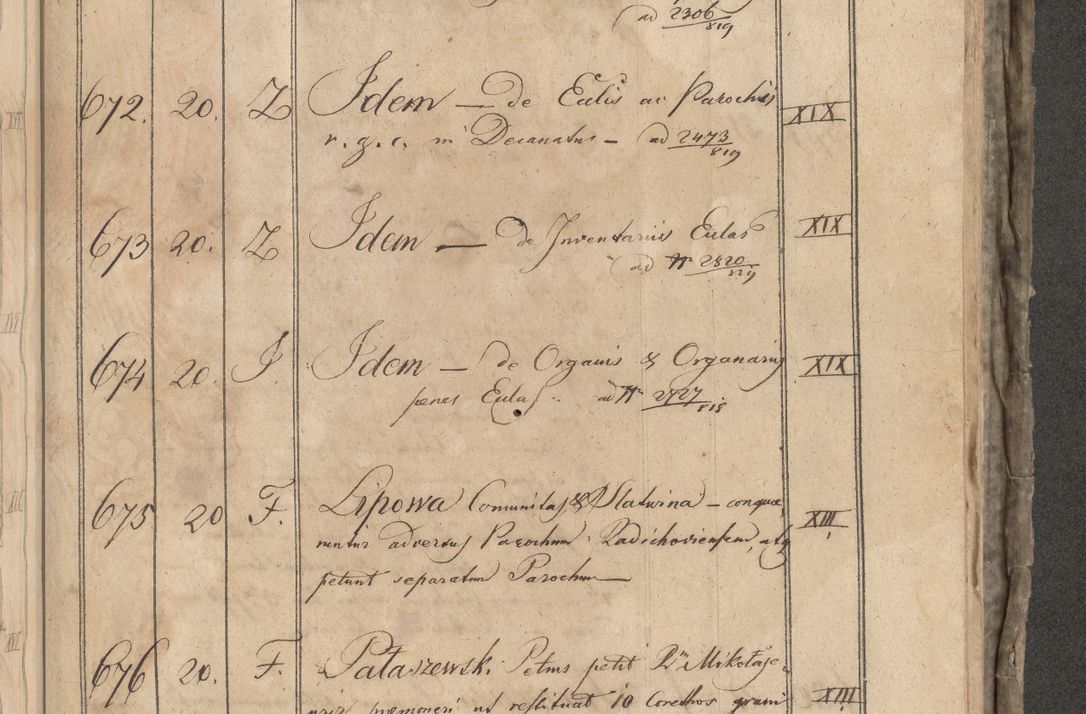 ad 2306/819
672. 20. Z Idem — de Eccliis ac Parochiis XIX
r. g. c. in Decanatus — ad 2473/819
673 20. Z Idem — de Inventariis Ecclas XIX
ad Nr 2820/819
674 20. J. Idem — de Organis & Organariis XIX
penes Ecclas. ad Nr 2727/818
675 20 F. Lipowa Comunitas & Slatwina — conque XIII
runtur adversus Parochum Radichoviensem, atq
petunt separatum Parochum —
676 20. F. Pałaszewsk. Petrus petit Rdm Mikołaje- XIII
moneri ut restituat 10 Corethos grani